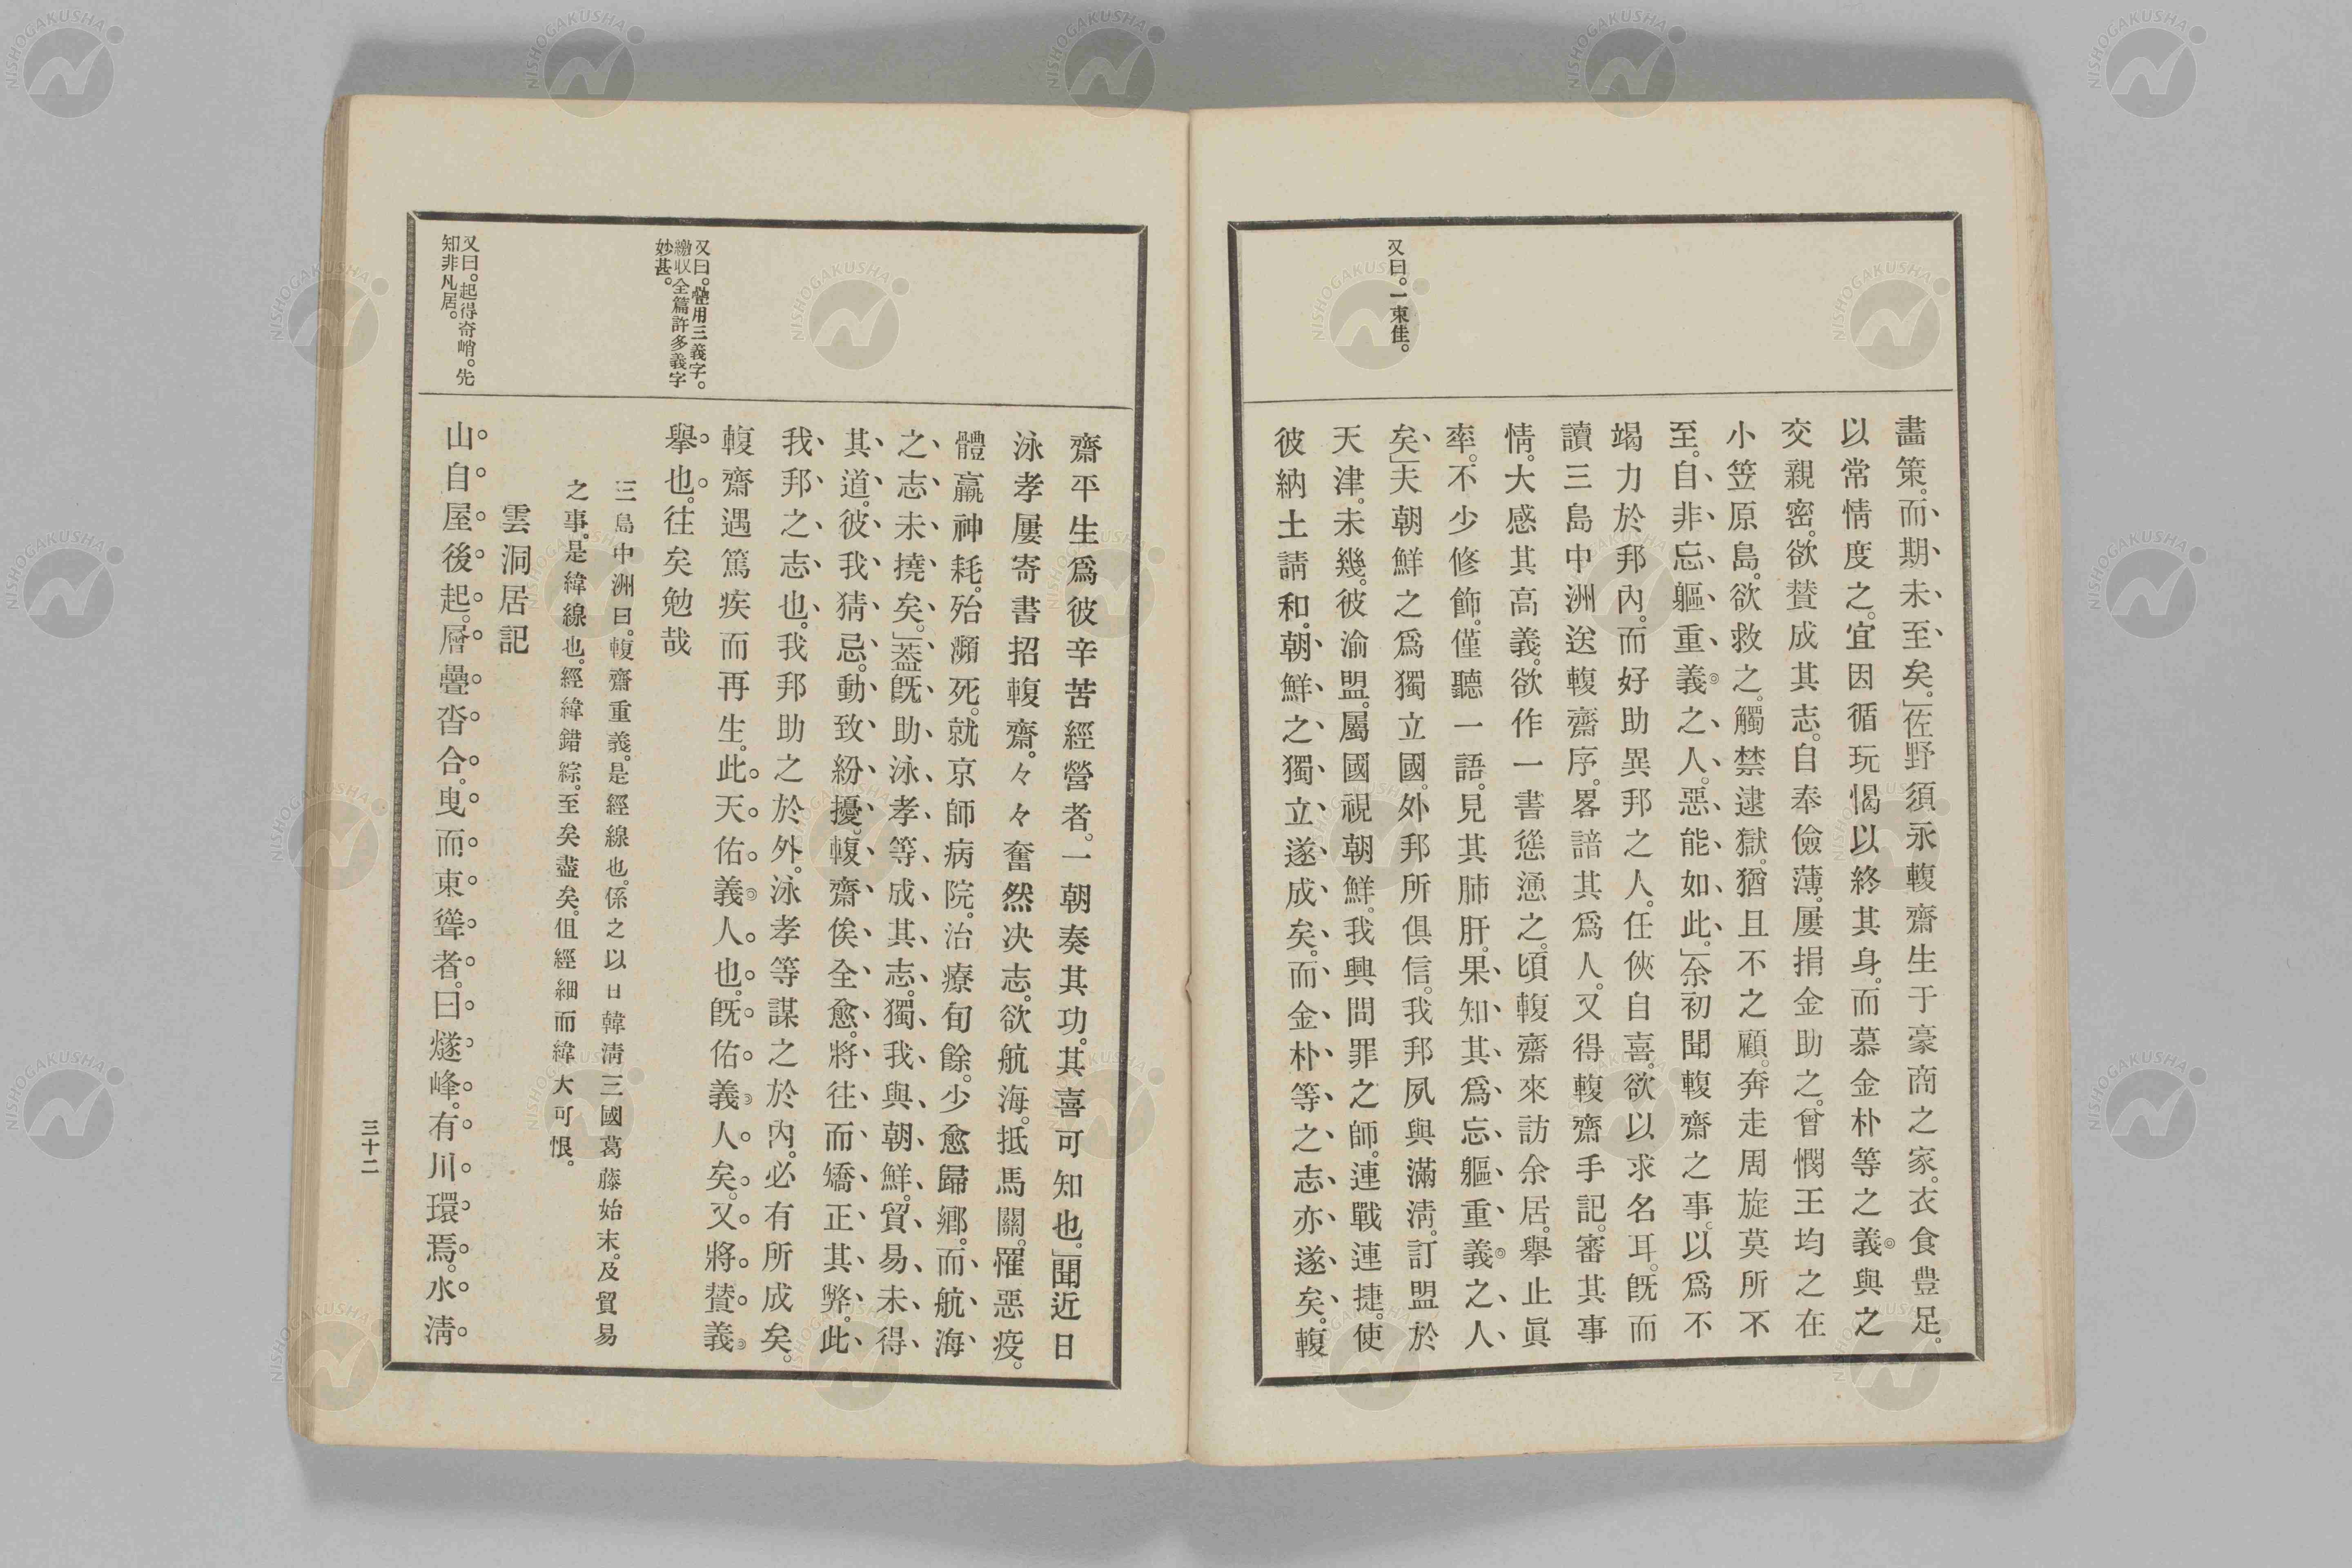 又曰。一束佳。
畫策。而期未至矣。」佐野須永輹齋生于豪商之家。衣食豊足。
以常情度之。宜因循玩愒以終其身。而慕金朴等之義與之
交親密。欲賛成其志。自奉儉薄。屢捐金助之。曾憫王均之在
小笠原島。欲救之。觸禁逮獄。猶且不之顧。奔走周旋莫所不
至。自非忘軀重義之人。惡能如此。」余初聞輹齋之事。以爲不
竭力於邦內。而好助異邦之人。任俠自喜。欲以求名耳。旣而
讀三島中洲送輹齋序。畧諳其爲人。又得輹齋手記。審其事
情。大感其高義。欲作一書慫慂之。頃輹齋來訪余居。擧止眞
率。不少修飾。僅聽一語。見其肺肝。果知其爲忘軀重義之人
矣。」夫朝鮮之爲獨立國。外邦所俱信。我邦夙與滿淸。訂盟於
天津。未幾。彼渝盟。屬國視朝鮮。我興問罪之師。連戰連捷。使
彼納土請和。朝鮮之獨立遂成矣。而金朴等之志亦遂矣。輹
又曰。疊用三義字。
繳収全篇許多義字
妙甚。
又曰。起得奇峭。先
知非凡居。
齋平生爲彼辛苦經營者。一朝奏其功。其喜可知也。」聞近日
泳孝屢寄書招輹齋。々々奮然决志。欲航海。抵馬關。罹惡疫。
體羸神耗。殆瀕死。就京師病院。治療旬餘。少愈歸鄕。而航海
之志未撓矣。」葢旣助泳孝等成其志。獨我與朝鮮。貿易未得
其道。彼我猜忌。動致紛擾。輹齋俟全愈。將往而矯正其弊。此
我邦之志也。我邦助之於外。泳孝等謀之於內。必有所成矣。
輹齋遇篤疾而再生。此天佑義人也。旣佑義人矣。又將賛義
擧也。往矣勉哉
三島中洲曰。輹齋重義。是經線也。係之以日韓淸三國葛藤始末。及貿易
之事。是緯線也。經緯錯綜。至矣盡矣。但經細而緯大可恨。
雲洞居記
山自屋後起。層疊沓合。曳而東聳者。曰燧峰。有川環焉。水淸
三十二
NISHOGAKUSHA